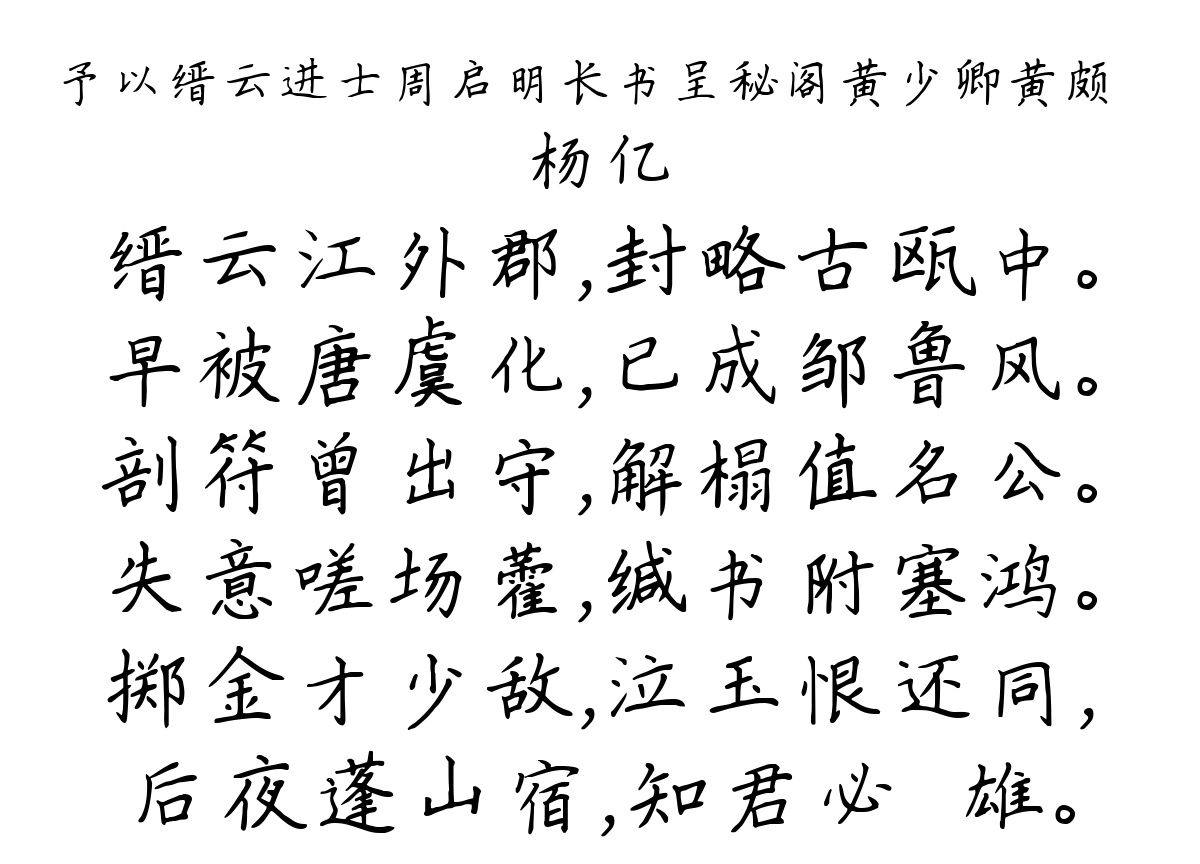 予以缙云进士周启明长书呈秘阁黄少卿黄颇
杨亿
缙云江外郡,封略古瓯中。
早被唐虞化,已成邹鲁风。
剖符曾出守,解榻值名公。
失意嗟场藿,缄书附塞鸿。
掷金才少敌,泣玉恨还同,
后夜蓬山宿,知君必 雄。